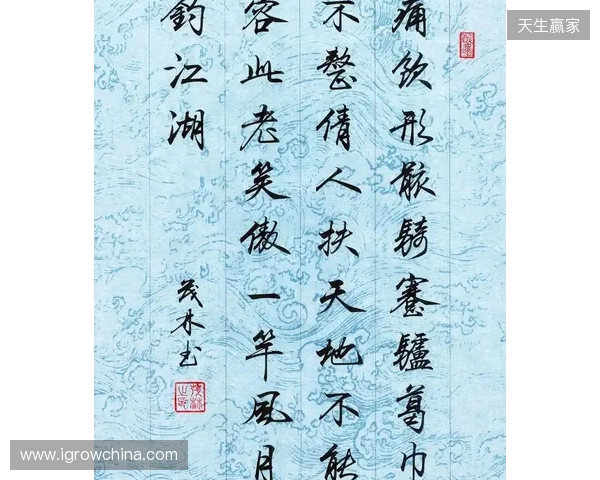 痛饮形骸骑蹇驴葛巾
不整倩人扶天地不能
容此老笑傲一竿风月
钓江湖
茂林书
天生赢家
www.igrowchina.com